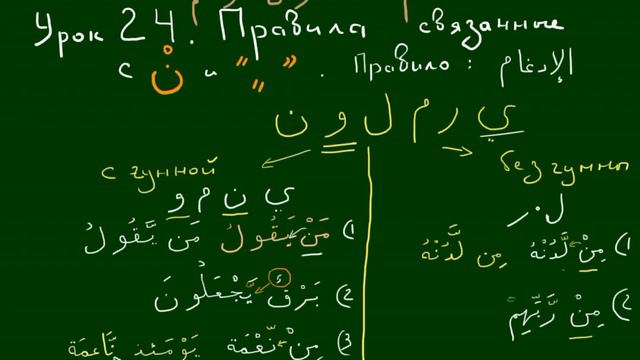 Урок 24. Правила связанные
с نْ и ً ٍ ٌ . Правило : الإدغام
ي ر م ل و ن
с гунной
ي ن م و
1) مَنْ يَقُولُ مَن يَّقُولُ
2) بَرْقٌ يَجْعَلُونَ
3) مِنْ نِّعْمَة يَوْمَئِذٍ نَّاعِمَة
без гунны
ل ر
1) مِنْ لَّدُنْهُ مِن لَّدُنْهُ
2) مِنْ رَّبِّهِمْ